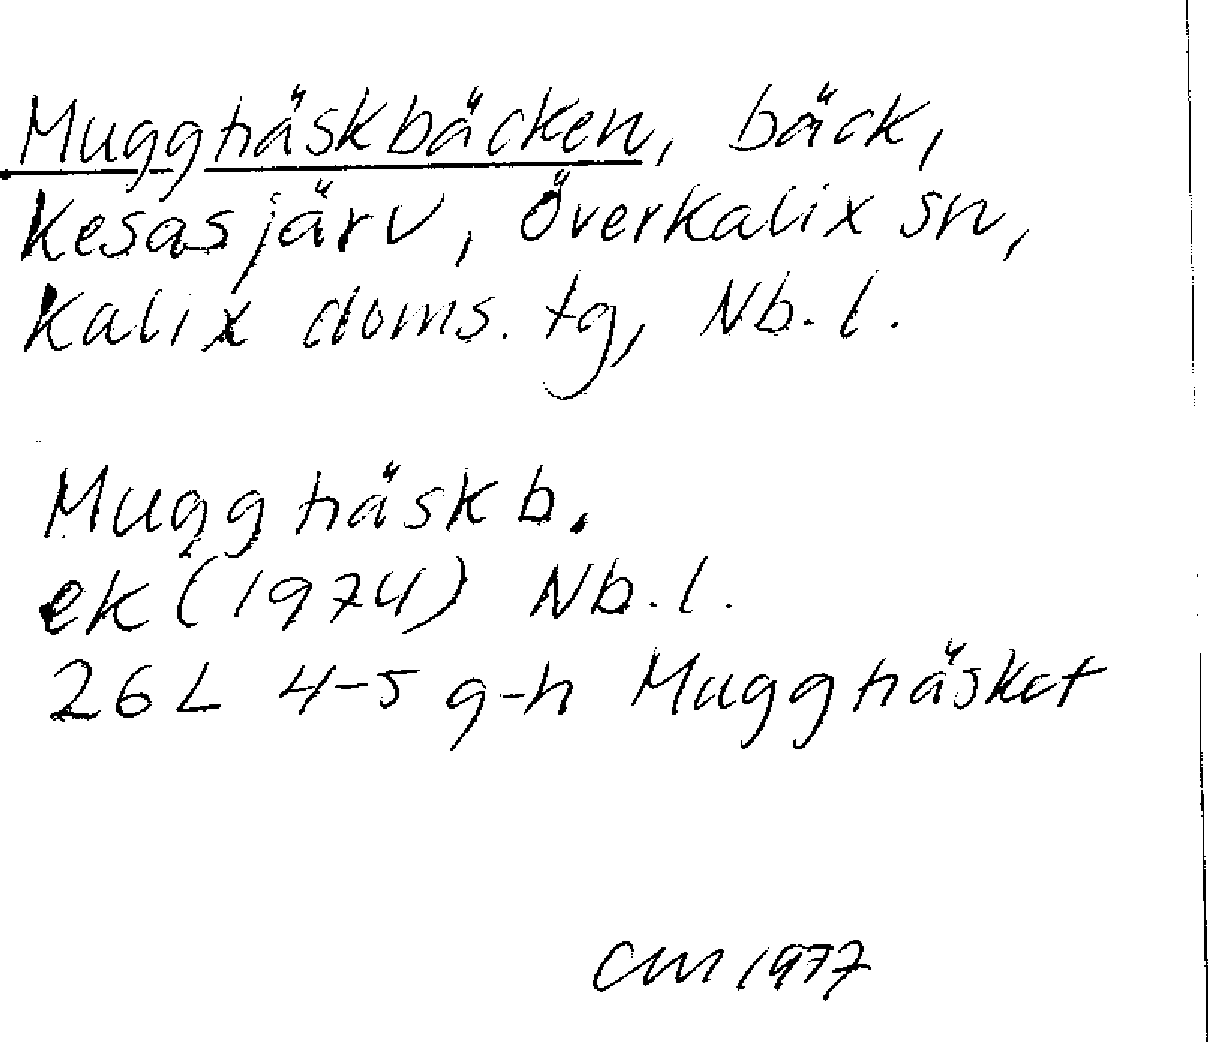 Mugghäskbäcken, bäck,
Kesasjärv, Överkalix sn,
Kalix doms. tg, Nb. l.
Mugghäskb.
ek (1974) Nb. l.
26L 4-5 g-h Mugghäsket
CM 1977